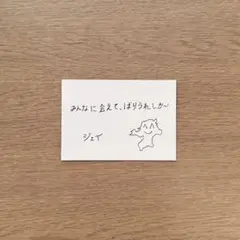 みんなに会えて、ばりうれしかー
ジェイ